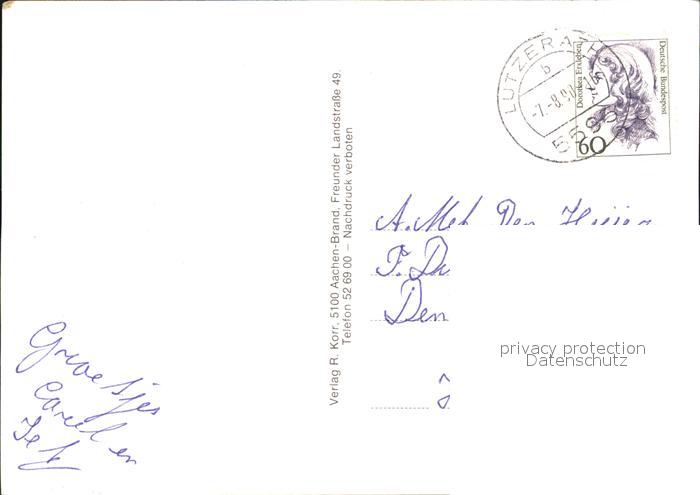 LUTZERATH
b
-7.-8.90
5585
Deutsche Bundespost
Dorothea Erxleben
60
Verlag R. Korr, 5100 Aachen-Brand, Freunder Landstraße 49.
Telefon 52 69 00 – Nachdruck verboten
A. Den
Den
privacy protection
Datenschutz
Groetjes
en